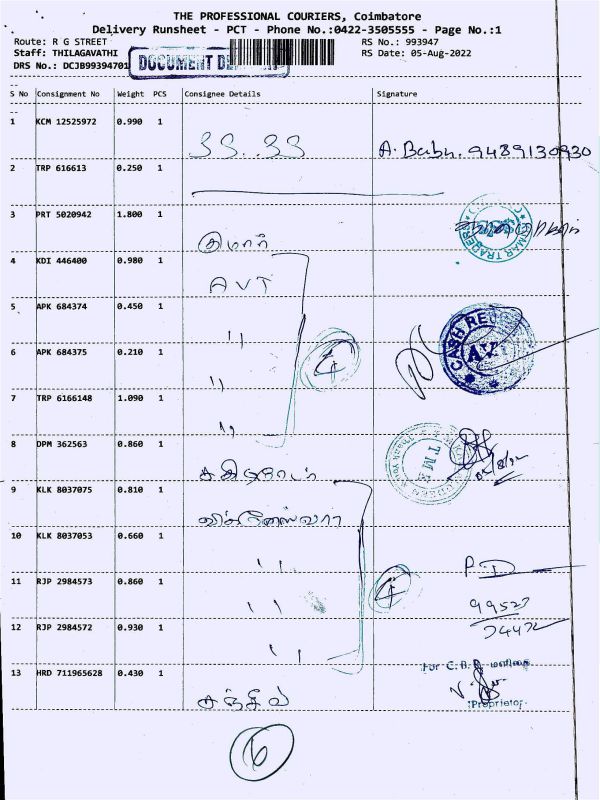 THE PROFESSIONAL COURIERS, Coimbatore
Delivery Runsheet - PCT - Phone No.:0422-3505555 - Page No.:1
Route: R G STREET RS No.: 993947
Staff: THILAGAVATHI RS Date: 05-Aug-2022
DRS No.: DCJB99394701 DOCUMENT
S No Consignment No Weight PCS Consignee Details Signature
1 KCM 12525972 0.990 1
A. Babu. 9489130930
2 TRP 616613 0.250 1
3 PRT 5020942 1.800 1
குமார்
4 KDI 446400 0.980 1
AVT
5 APK 684374 0.450 1 "
CASH
AVT
6 APK 684375 0.210 1 "
4
7 TRP 6166148 1.090 1 "
8 DPM 362563 0.860 1
TME
9 KLK 8037075 0.810 1
விக்னேஸ்வரா
10 KLK 8037053 0.660 1 "
P.D
11 RJP 2984573 0.860 1 "
4
99527
74472
12 RJP 2984572 0.930 1 "
13 HRD 711965628 0.430 1
For C.B.
சஞ்சீவ்
Proprietor
6